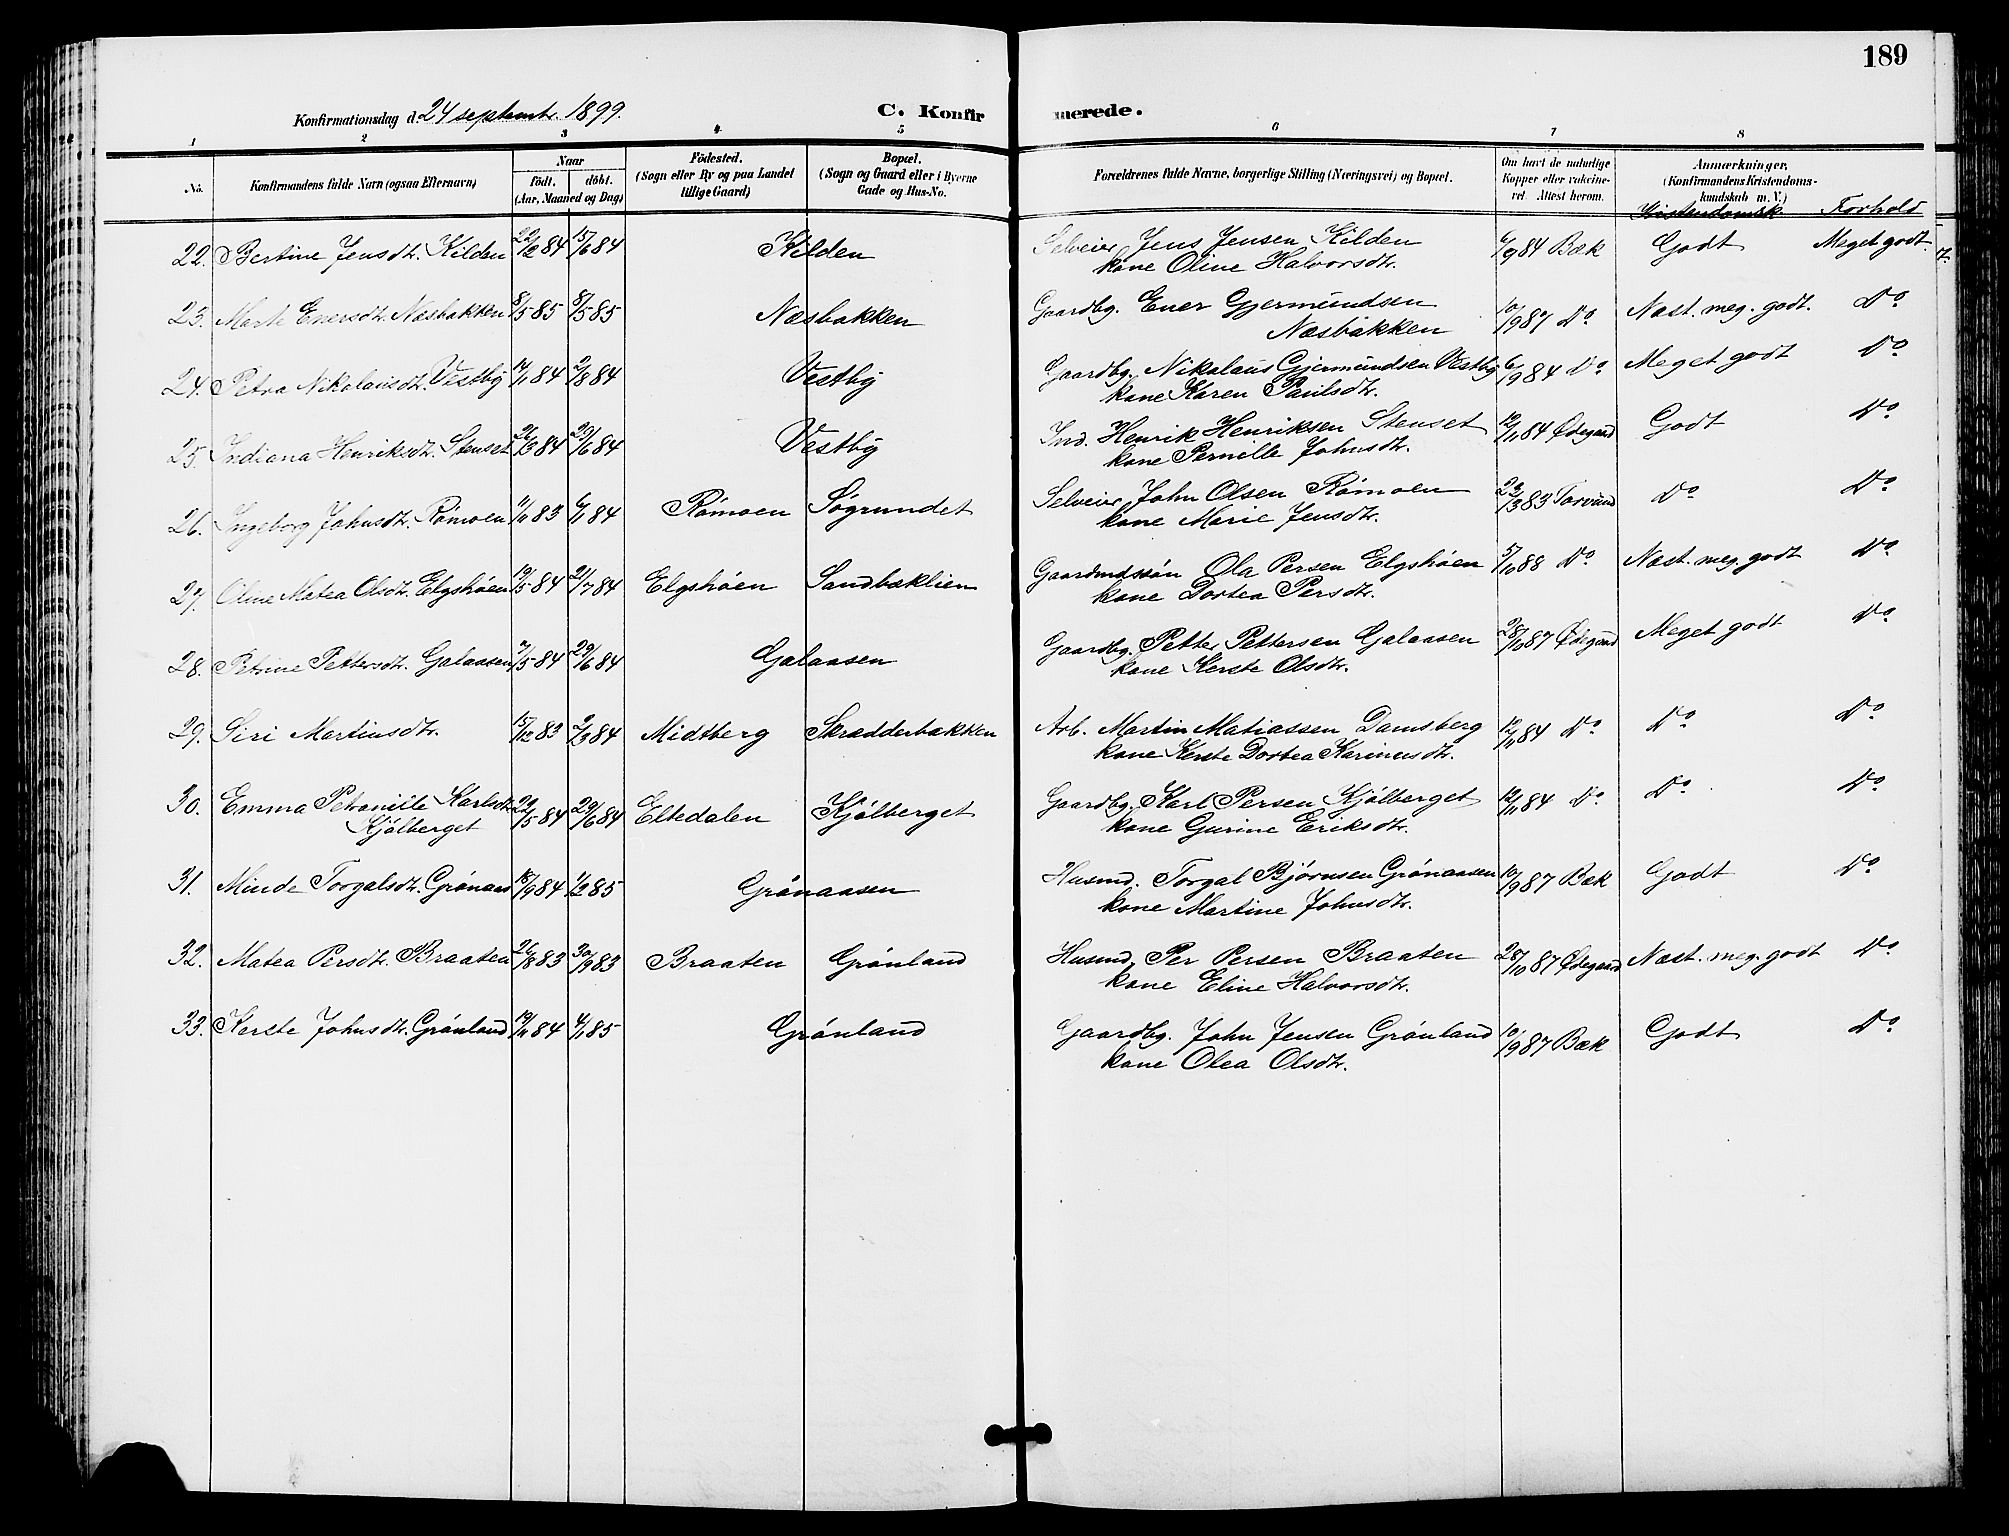 189
Konfirmationsdag d. 24 septembr. 1899. C. Konfirmerede.
1 2 3 4 5 6 7 8
No. Konfirmandens fulde Navn (ogsaa Efternavn) Naar födt. döbt. (Aar, Maaned og Dag) Födested. (Sogn eller By og paa Landet tillige Gaard) Bopæl. (Sogn og Gaard eller i Byerne Gade og Hus-No. Forældrenes fulde Navne, borgerlige Stilling (Næringsvei) og Bopæl. Om havt de naturlige Kopper eller vakcineret. Attest herom. Anmærkninger, (Konfirmandens Kristendomskundskab m.V.)
Kristendomsk. Forhold
22. Bertine Jensdt. Kilden 22/2 84 15/6 84 Kilden Selveier Jens Jensen Kilden 6/9 84 Bæk Godt Meget godt.
kone Oline Halvorsdt.
23. Marte Enersdt. Næsbakken 8/5 85 8/5 85 Næsbakken Gaardbg. Ener Gjermundsen 10/9 87 Do. Næst. meg. godt. Do
Næsbakken
24. Petra Nikolausdt. Vestby 14/1 84 2/3 84 Vestby Gaardbg. Nikolaus Gjermundsen Vestby 6/9 84 Do. Meget godt Do
kone Karen Paulsdt.
25. Indiana Henriksdt. Stenset 26/3 84 29/6 84 Vestby Ind. Henrik Henriksen Stenset 12/11 84 Ødegaard Godt Do
kone Pernille Johnsdt.
26. Ingeborg Johnsdt. Römoen 11/11 83 6/1 84 Römoen Søgrundet Selveier John Olsen Römoen 22/3 83 Torvund Do Do
kone Marie Jensdt.
27. Oline Matea Olsdt. Elgshöen 19/5 84 21/7 84 Elgshöen Sandbæklien Gaardmdssön Ola Persen Elgshöen 5/10 88 Do. Næst. meg. godt Do
kone Dortea Persdt.
28. Petrine Pettersdt. Galaasen 7/5 84 29/6 84 Galaasen Gaardbg. Petter Pettersen Galaasen 28/10 87 Ødegaard Meget godt Do
kone Kerste Olsdt.
29. Siri Martinsdt. 15/12 83 2/3 84 Midtberg Skrædderbakken Arb. Martin Matiassen Damsberg 12/11 84 Do. Do Do
kone Kerste Dortea Karinusdt.
30. Emma Petranille Karlsdt. 22/5 84 29/6 84 Eltedalen Kjölberget Gaardbg. Karl Persen Kjölberget 12/11 84 Do. Do Do
Kjölberget kone Gurine Eriksdt.
31. Minde Torgalsdt. Grönaas 18/9 84 1/2 85 Grönaasen Husmd. Torgal Björnsen Grönaasen 10/9 87 Bæk Godt Do
kone Martine Johnsdt.
32. Matea Persdt. Braaten 26/8 83 30/9 83 Braaten Grönland Husmd. Per Persen Braaten 28/10 87 Ødegaard Næst. meg. godt Do
kone Eline Halvorsdt.
33. Kerste Johnsdt. Grönland 19/11 84 4/1 85 Grönland Gaardbg. John Jensen Grönland 10/9 87 Bæk Godt Do
kone Olea Olsdt.